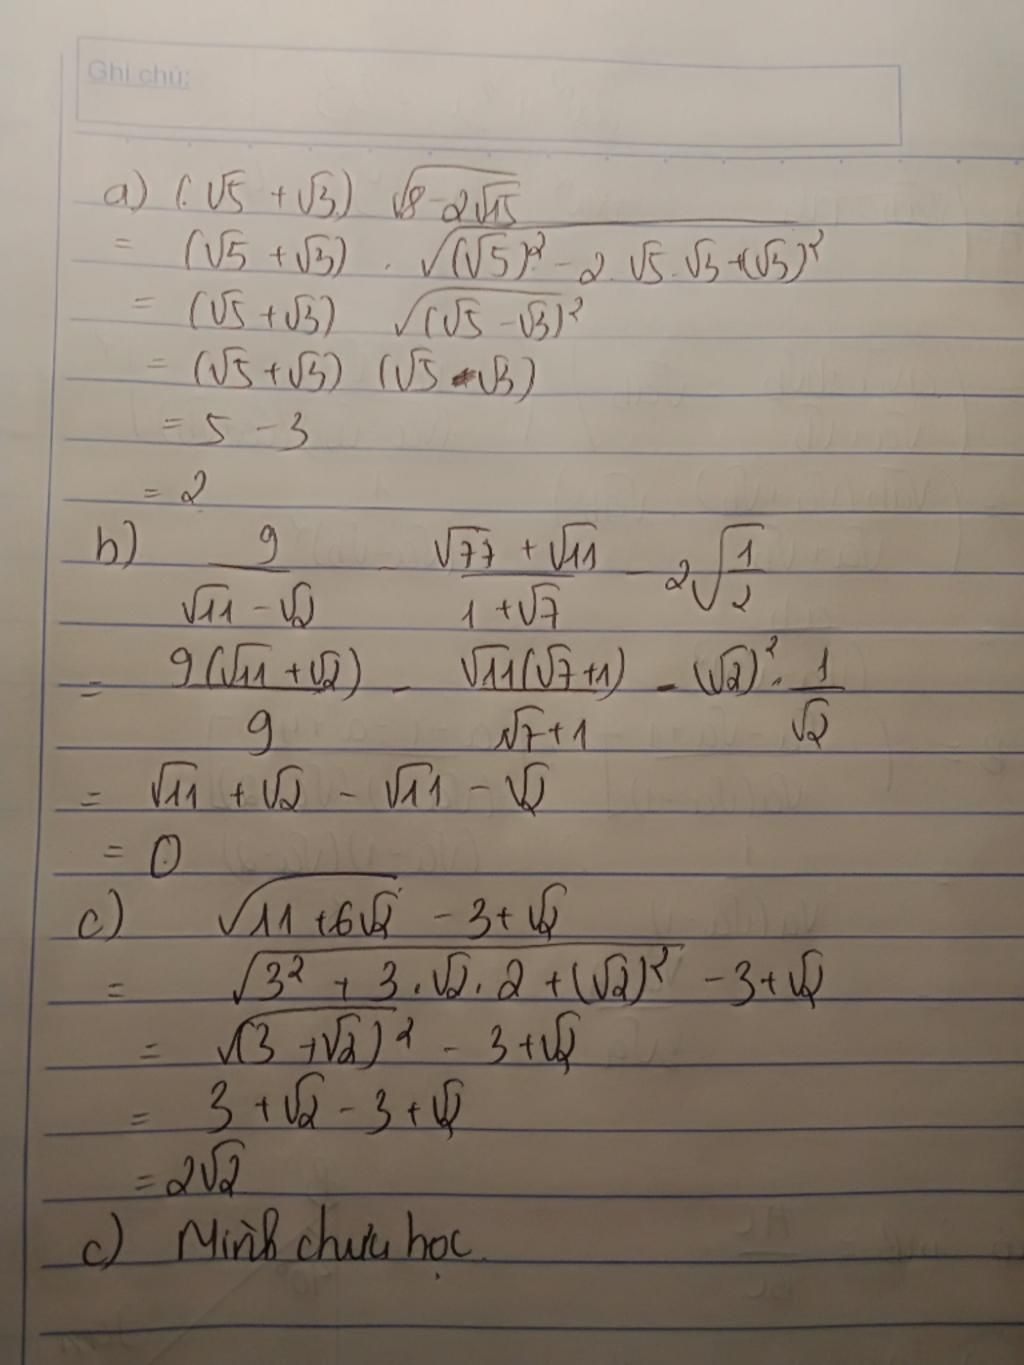 Ghi chú:
a) (√5 + √3) √(8 - 2√15)
= (√5 + √3) . √((√5)² - 2.√5.√3 + (√3)²)
= (√5 + √3) √((√5 - √3)²)
= (√5 + √3) (√5 - √3)
= 5 - 3
= 2
b) 9/(√11 - √2) - (√77 + √11)/(1 + √7) - 2√(1/2)
= 9(√11 + √2)/9 - √11(√7 + 1)/(√7 + 1) - (√2)² . 1/√2
= √11 + √2 - √11 - √2
= 0
c) √(11 + 6√2) - 3 + √2
= √(3² + 3.√2.2 + (√2)²) - 3 + √2
= √((3 + √2)²) - 3 + √2
= 3 + √2 - 3 + √2
= 2√2
c) Mình chưa học